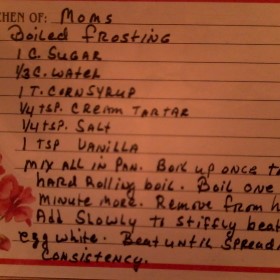 HEN OF: Moms
Boiled Frosting
1 C. Sugar
1/3 C. Water
1 T. Corn Syrup
1/4 tsp. Cream Tartar
1/4 tsp. Salt
1 tsp Vanilla
Mix all in pan. Boil up once to
hard Rolling boil. Boil one
minute more. Remove from h
Add Slowly to Stiffly beat
egg white. Beat until Spread
Consistency.